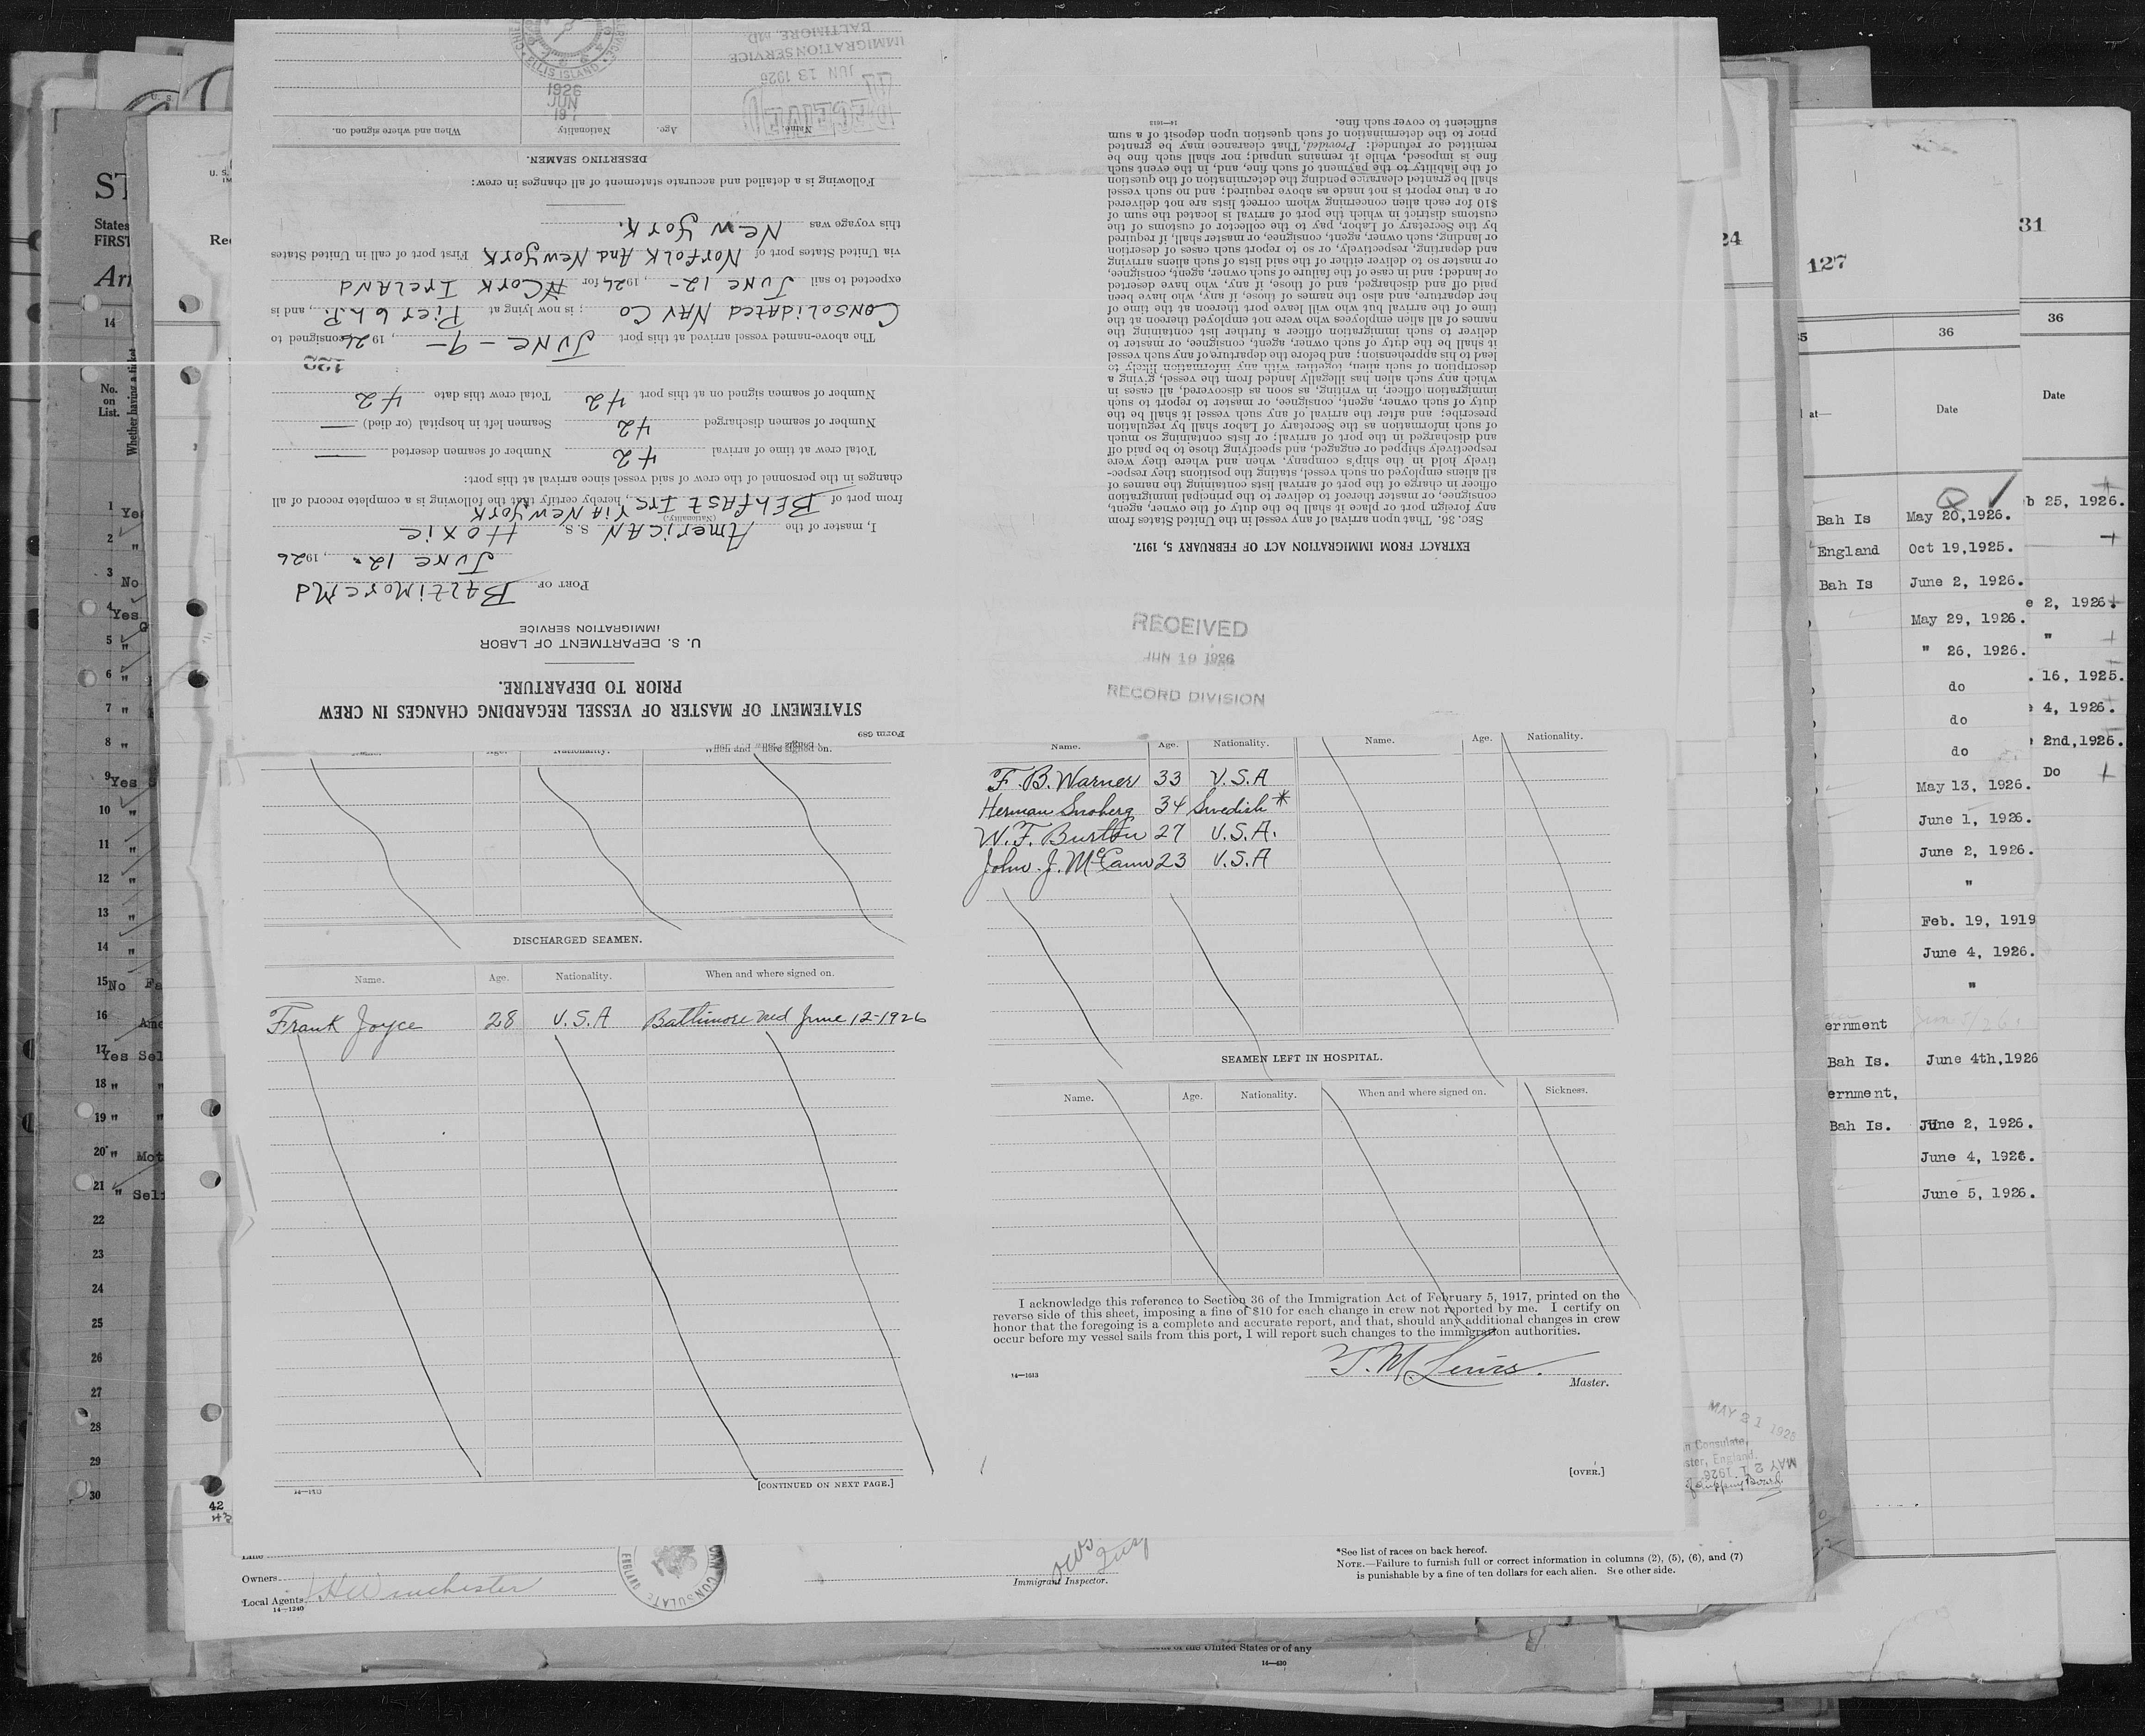 Form 689
STATEMENT OF MASTER OF VESSEL REGARDING CHANGES IN CREW
PRIOR TO DEPARTURE.
U. S. DEPARTMENT OF LABOR
IMMIGRATION SERVICE
PORT OF Baltimore Md
June 12, 1926
I, master of the American S. S. Hoxie
(Nationality.)
from port of Belfast Ire Via New York, hereby certify that the following is a complete record of all
changes in the personnel of the crew of said vessel since arrival at this port:
Total crew at time of arrival 42 Number of seamen deserted —
Number of seamen discharged 42 Seamen left in hospital (or died) —
Number of seamen signed on at this port 42 Total crew this date 42
The above-named vessel arrived at this port June - 9 -, 1926 consigned to
Consolidated Nav Co; is now lying at Pier 6 h.P., and is
expected to sail June 12 -, 1926, for Cork Ireland
via United States port of Norfolk And New York First port of call in United States
this voyage was New York.
Following is a detailed and accurate statement of all changes in crew:
DESERTING SEAMEN.
Name. Age. Nationality. When and where signed on.
RECEIVED
JUN 13 1926
IMMIGRATION SERVICE
BALTIMORE MD.
ELLIS ISLAND
1926
JUN
19
EXTRACT FROM IMMIGRATION ACT OF FEBRUARY 5, 1917.
SEC. 36. That upon arrival of any vessel in the United States from
any foreign port or place it shall be the duty of the owner, agent,
consignee, or master thereof to deliver to the principal immigration
officer in charge of the port of arrival lists containing the names of
all aliens employed on such vessel, stating the positions they respec-
tively hold in the ship's company, when and where they were
respectively shipped or engaged, and specifying those to be paid off
and discharged in the port of arrival; or lists containing so much
of such information as the Secretary of Labor shall by regulation
prescribe; and after the arrival of any such vessel it shall be the
duty of such owner, agent, consignee, or master to report to such
immigration officer, in writing, as soon as discovered, all cases in
which any such alien has illegally landed from the vessel, giving a
description of such alien, together with any information likely to
lead to his apprehension; and before the departure of any such vessel
it shall be the duty of such owner, agent, consignee, or master to
deliver to such immigration officer a further list containing the
names of all alien employees who were not employed thereon at the
time of the arrival but who will leave port thereon at the time of
her departure, and also the names of those, if any, who have been
paid off and discharged, and of those, if any, who have deserted
or landed; and in case of the failure of such owner, agent, consignee,
or master so to deliver either of the said lists of such aliens arriving
and departing, respectively, or so to report such cases of desertion
or landing, such owner, agent, consignee, or master shall, if required
by the Secretary of Labor, pay to the collector of customs of the
customs district in which the port of arrival is located the sum of
$10 for each alien concerning whom correct lists are not delivered
or a true report is not made as above required; and no such vessel
shall be granted clearance pending the determination of the question
of the liability to the payment of such fine, and, in the event such
fine is imposed, while it remains unpaid; nor shall such fine be
remitted or refunded: Provided, That clearance may be granted
prior to the determination of such question upon deposit of a sum
sufficient to cover such fine.
14—1613
RECEIVED
JUN 19 1926
RECORD DIVISION
DISCHARGED SEAMEN.
Name. Age. Nationality. When and where signed on.
Frank Joyce 28 U.S.A Baltimore Md June 12-1926
[CONTINUED ON NEXT PAGE.]
Name. Age. Nationality. Name. Age. Nationality.
F. B. Warner 33 U.S.A
Herman 34 Swedish *
W. F. Burton 27 U.S.A.
John. J. McCann 23 U.S.A
SEAMEN LEFT IN HOSPITAL.
Name. Age. Nationality. When and where signed on. Sickness.
I acknowledge this reference to Section 36 of the Immigration Act of February 5, 1917, printed on the
reverse side of this sheet, imposing a fine of $10 for each change in crew not reported by me. I certify on
honor that the foregoing is a complete and accurate report, and that, should any additional changes in crew
occur before my vessel sails from this port, I will report such changes to the immigration authorities.
14—1613
T. M. Lewis.
Master.
[OVER.]
Owners
Local Agents
14—1240
Immigrant Inspector.
*See list of races on back hereof.
NOTE.—Failure to furnish full or correct information in columns (2), (5), (6), and (7)
is punishable by a fine of ten dollars for each alien. See other side.
of the United States or of any
14—430
States
FIRST
14
No.
on
List.
Whether having a ticket
1 Ye
2 "
3 No
4 Yes
5 "
6 "
7 "
8 "
9 Yes
10 "
11 "
12 "
13 "
14 "
15 No Fa
16 Ame
17 Yes Sel
18 " "
19 " "
20 " Mot
21 " Sel
22
23
24
25
26
27
28
29
30
42
43
24
127
31
36
36
at—
Date
Date
Bah Is May 20,1926.
England Oct 19,1925.
Bah Is June 2, 1926.
May 29, 1926.
" 26, 1926.
do
do
do
May 13, 1926.
June 1, 1926.
June 2, 1926.
"
Feb. 19, 1919
June 4, 1926.
"
ernment
Bah Is. June 4th,1926
ernment,
Bah Is. June 2, 1926.
June 4, 1926.
June 5, 1926.
b 25, 1926.
e 2, 1926.
"
. 16, 1925.
4, 1926.
2nd,1926.
Do
MAY 21 1926
n Consulate,
ster, England.
MAY 21 1926